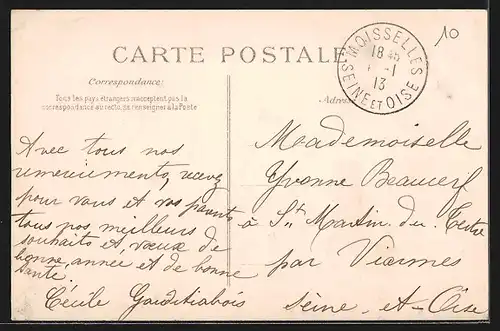 10
MOISSELLES
18 45
-1
13
SEINE ET OISE
CARTE POSTALE
Correspondance:
Tous les pays étrangers n'acceptent pas la
correspondance au recto, se renseigner à la Poste
Adres
Avec tous nos
remerciements, recevez
pour vous et vos parents
tous nos meilleurs
souhaits et vœux de
bonne année et de bonne
santé,
Cécile
Mademoiselle
Yvonne Beaucerf
à St Martin du Tertre
par Viarmes
Seine-et-Oise